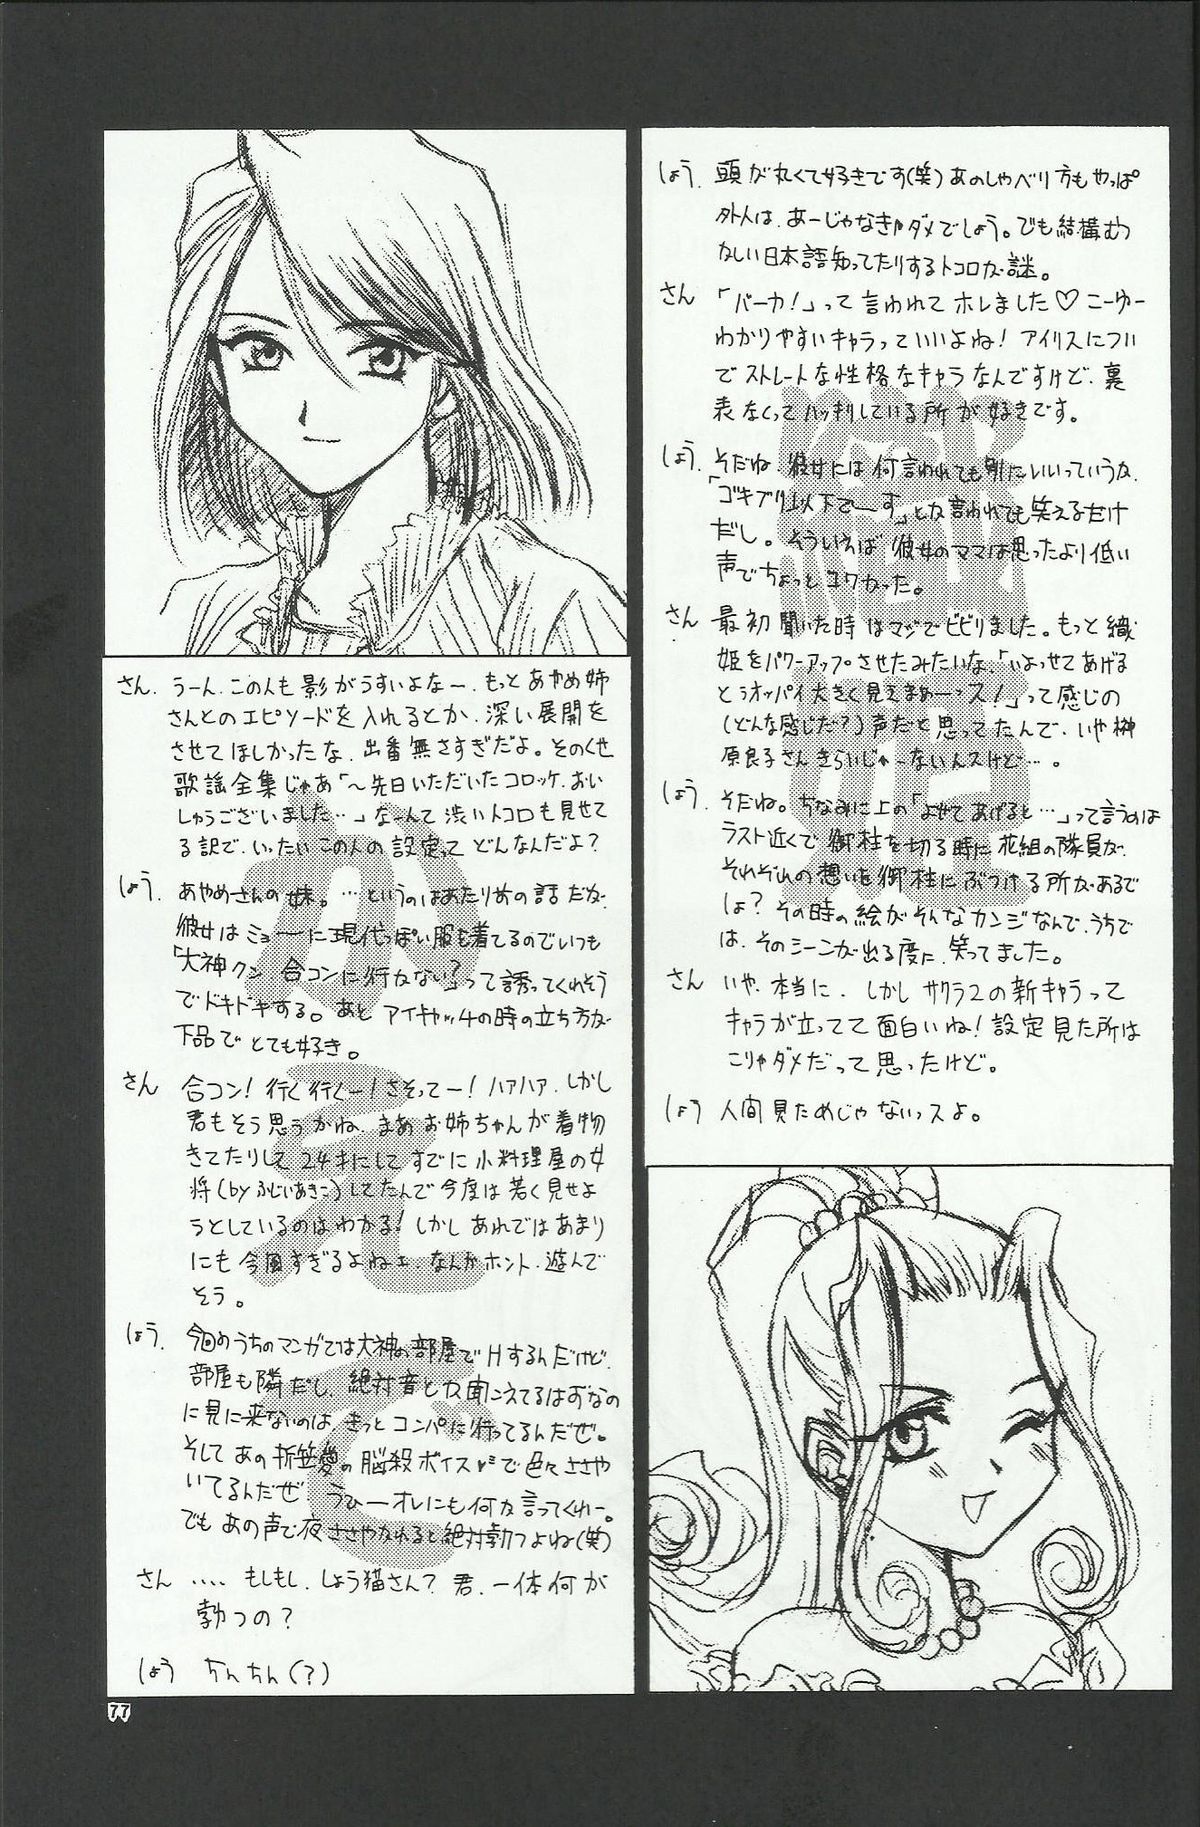 しょう. 頭が丸くて好きです(笑)あのしゃべり方もやっぱ
外人は、あーじゃなきゃダメでしょう。でも結構むつ
かしい日本語知ってたりするトコロが謎。
さん 「バーカ!」って言われてホレました♡こーゆー
わかりやすいキャラっていいよね!アイリスについ
でストレートな性格なキャラなんですけど、裏
表なくってハッキリしている所が好きです。
しょう. そだね、彼女には何言われても別にいいっていうか、
「ゴキブリ以下でーす」とか言われても笑えるだけ
だし。そういえば彼女のママは思ったより低い
声でちょっとコワかった。
さん 最初聞いた時はマジでビビりました。もっと織
姫をパワーアップさせたみたいな、「いよっせてあげる
とぅオッパイ大きく見えまぁーっス!」って感じの
(どんな感じだ?)声だと思ってたんで、いや榊
原良子さんきらいじゃーないんスけど…。
しょう. そだね。ちなみに上の「よせてあげると…」って言うのは
ラスト近くで御柱を切る時に花組の隊員が、
それぞれの想いを御柱にぶつける所があるで
しょ?その時の絵がそんなカンジなんで、うちで
は、そのシーンが出る度に、笑ってました。
さん いや、本当に、しかしサクラ2の新キャラって
キャラが立ってて面白いね!設定見た所は
こりゃダメだって思ったけど。
しょう 人間見ためじゃないっスよ。
織姫
さん. うーん、この人も影がうすいよなー、もっとあやめ姉
さんとのエピソードを入れるとか、深い展開を
させてほしかったな、出番無さすぎだよ。そのくせ
歌謡全集じゃあ「~先日いただいたコロッケ、おい
しゅうございました…」なーんて渋いトコロも見せて
る訳で、いったいこの人の設定ってどんなんだよ?
しょう. あやめさんの妹。…というのはあたり前の話だが、
彼女はミョーに現代っぽい服を着てるのでいつも
「大神クン 合コンに行かない?」って誘ってくれそう
でドキドキする。あと アイキャッチの時の立ち方が
下品で とても好き。
さん 合コン!行く行くー!さそってー!ハアハア、しかし
君もそう思うかね、まあお姉ちゃんが着物
きてたりして24才にしてすでに小料理屋の女
将(by ふじいあきこ)してたんで今度は若く見せよ
うとしているのはわかる!しかしあれではあまり
にも今風すぎるよねェ、なんかホント、遊んで
そう。
しょう. 今回のうちのマンガでは大神の部屋でHするんだけど、
部屋も隣だし、絶対音とか聞こえてるはずなの
に見に来ないのは、きっとコンパに行ってるんだぜ。
そしてあの折笠愛の脳殺ボイスで色々ささや
いてるんだぜ うひーオレにも何か言ってくれー。
でもあの声で夜ささやかれると絶対勃つよね(笑)
さん ....もしもし、しょう猫さん?君、一体何が
勃つの?
しょう ちんちん(?)
かえで
77